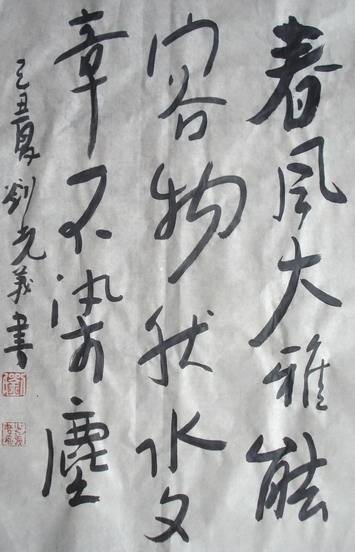 春风大雅能
容物秋水文
章不染尘
己丑夏刘光义书